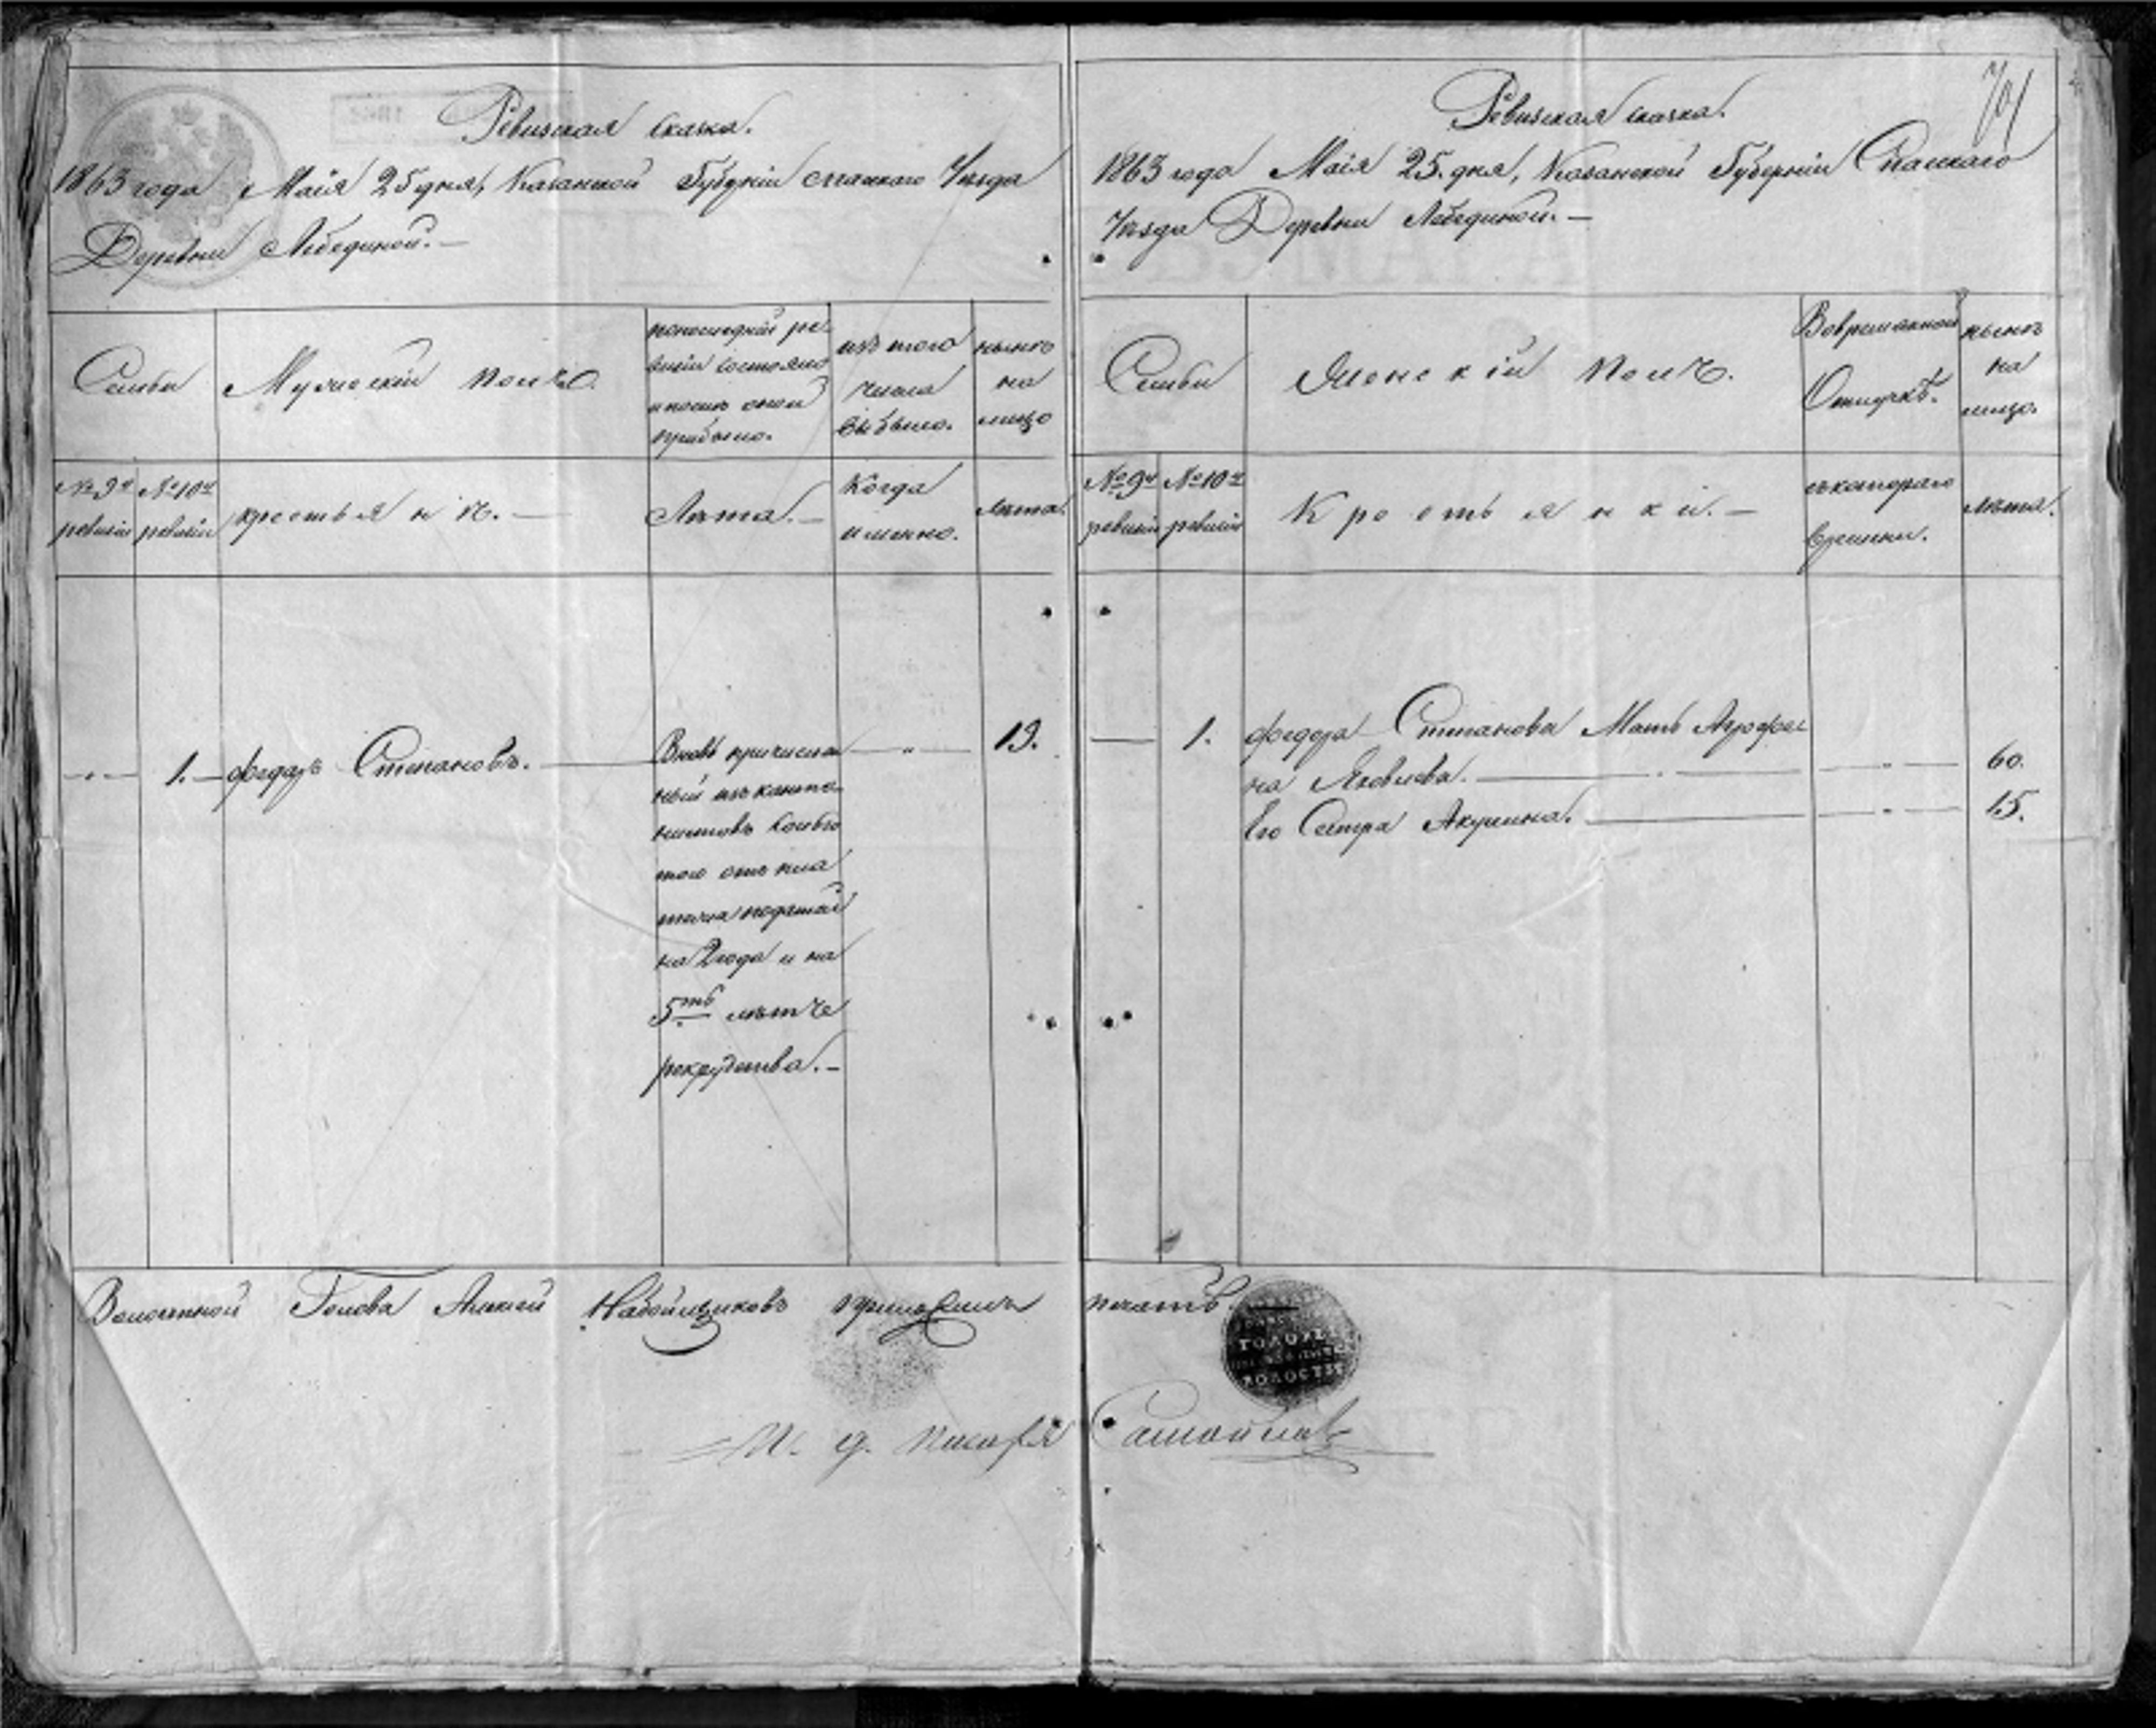 701
Ревизская сказка.
1863 года Маія 25 дня, Казанской Губерніи спаскаго Уѣзда
Деревни Лебединой. —
Семьи
Мужескій полъ.
попоследній ре
визіи состояло
и послѣ оной
прибыло.
изъ того
числа
выбыло.
нынѣ
на
лицо
№ 9й
ревизіи
№ 10й
ревизіи
крестьянъ. —
Лѣта. —
Когда
именно.
Лѣта.
1. — федоръ Степановъ. —
Вновь причислен
ный изъ канто
нистовъ сольго
тою отъ пла
тежа податей
на 2 года и на
5ть лѣтъ
рекрутства. —
— „ —
19.
Ревизская сказка.
1863 года Маія 25. дня, Казанской Губерніи Спаскаго
Уѣзда Деревни Лебединой. —
Семьи
Женскій полъ.
Вовременной
Отлучкѣ.
нынѣ
на
лицо.
№ 9й
ревизіи
№ 10й
ревизіи
Крестьянки. —
съкотораго
времени.
лѣта.
— 1. федора Степанова Мать Агрофе
на Яковлева. — „ — 60.
Его Сестра Акулина. — „ — 15.
Волостной Голова Алексей Набойщиковъ приложилъ печать.
ВОЛОСТИ
И. д. Писаря Самойлов